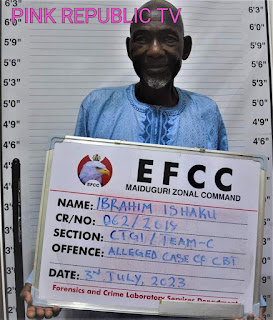 PINK REPUBLIC TV
EFCC
EFCC
MAIDUGURI ZONAL COMMAND
NAME: IBRAHIM ISHAKU
CR/NO: 062/2019
SECTION: CTGI/TEAM-C
OFFENCE: ALLEGED CASE OF CBT
DATE: 3rd JULY, 2023
Forensics and Crime Laboratory Services Department
6'3"
6'0"
5'9"
5'6"
5'3"
5'0"
4'9"
4'6"
6'3"
6'0"
5'9"
5'6"
5'3"
5'0"
4'9"